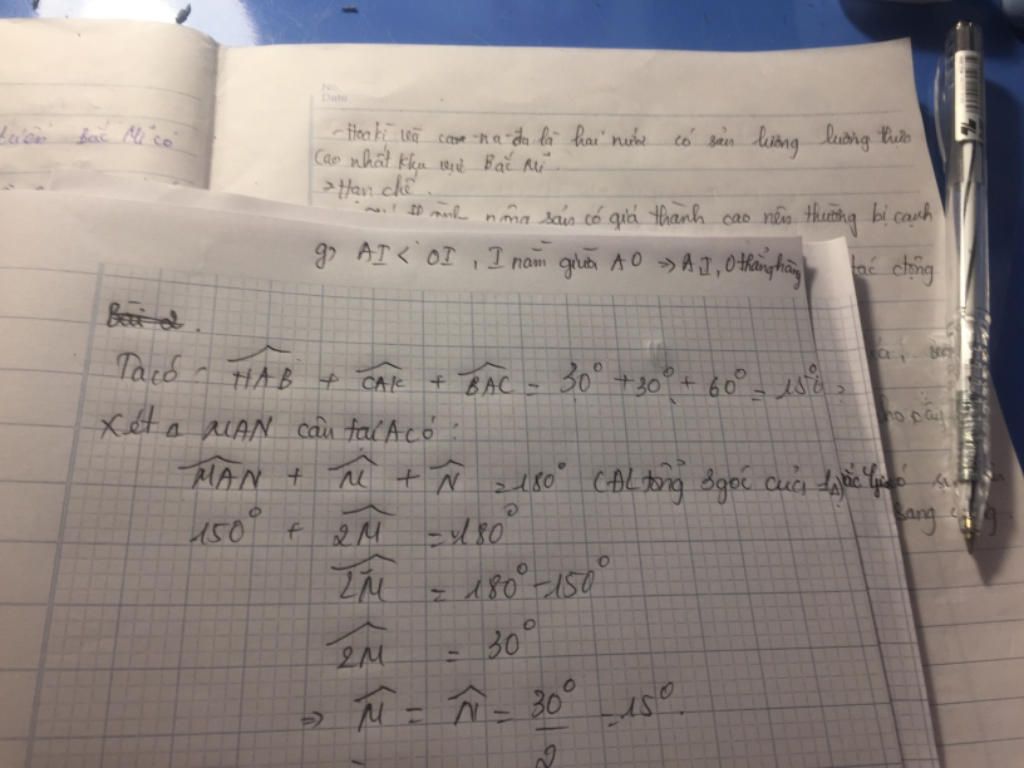 No.
Date
Bắc Mĩ có
- Hoa kì và ca-na-đa là hai nước có sản lượng lương thực
cao nhất khu vực Bắc Mĩ.
> Hạn chế.
nông sản có giá thành cao nên thường bị cạnh
tác động
g> AI < OI , I nằm giữa AO => A,I,O thẳng hàng
Bài 2.
Ta có - HAB + CAK + BAC = 30° + 30° + 60° = 150°
Xét Δ MAN cân tại A có :
MAN + M + N = 180° (ĐL tổng 3 góc của 1Δ)
150° + 2M = 180°
2M = 180° - 150°
2M = 30°
=> M = N = 30°/2 = 15°.